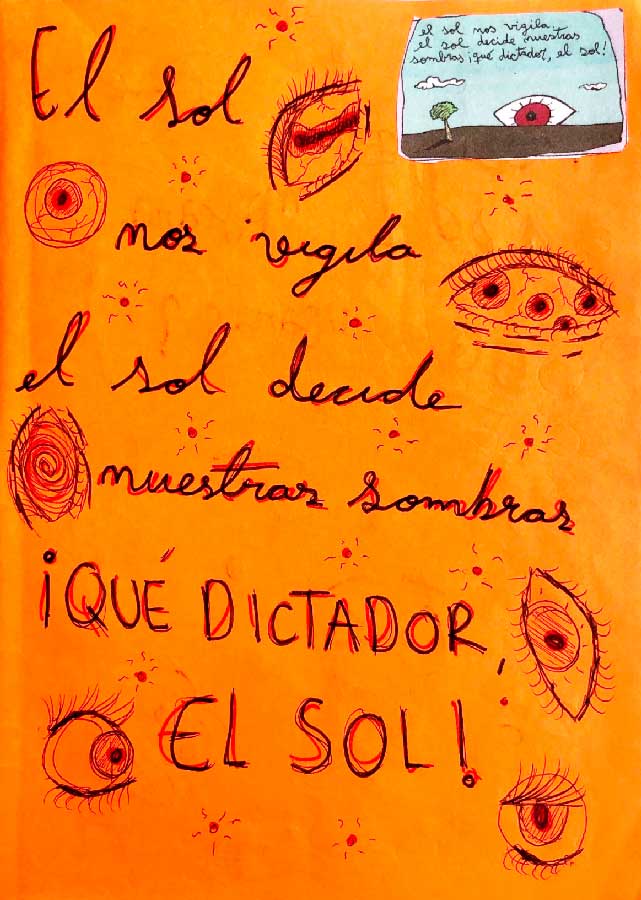 El sol
nos vigila
el sol decide
nuestras sombras
¡QUÉ DICTADOR,
EL SOL!
el sol nos vigila
el sol decide nuestras
sombras ¡qué dictador, el sol!